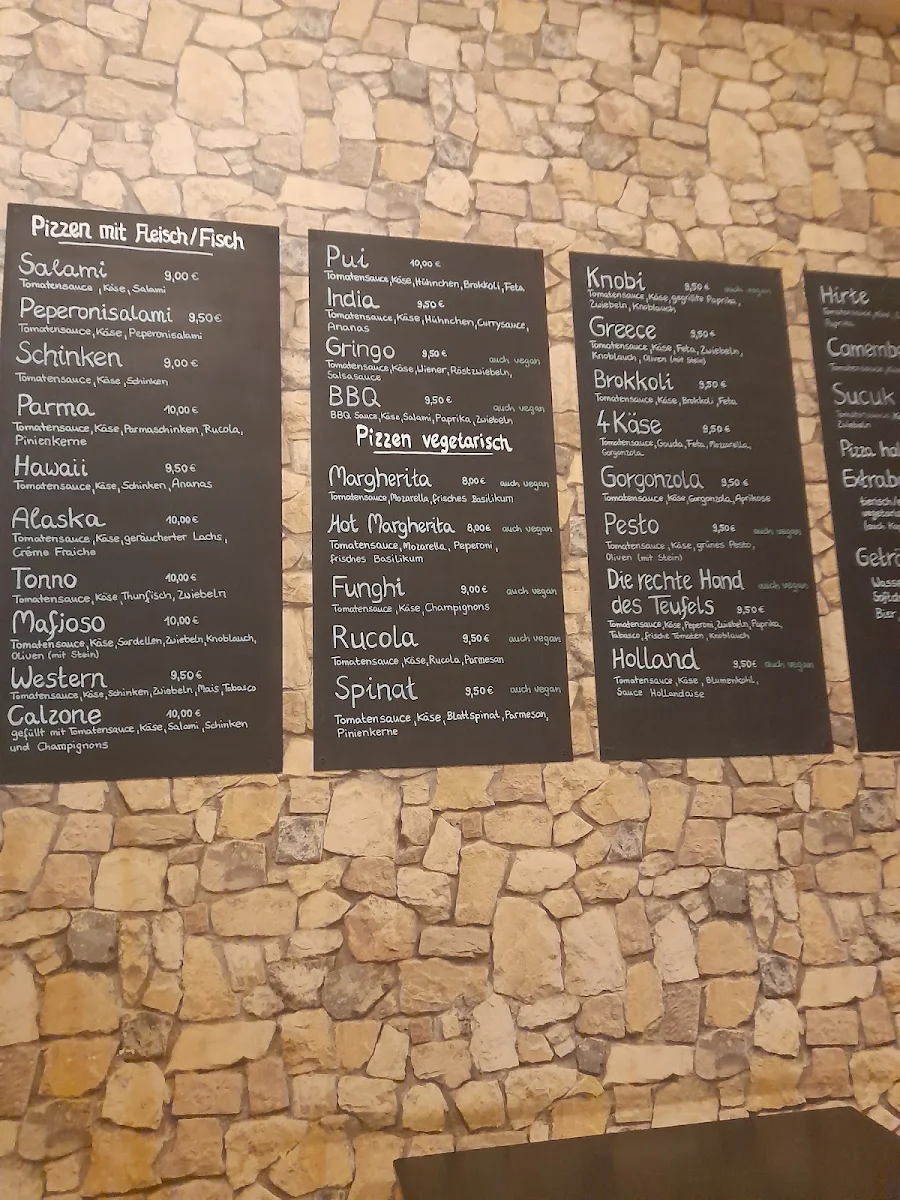 Pizzen mit Fleisch/Fisch
Salami 9,00 €
Tomatensauce, Käse, Salami
Peperonisalami 9,50 €
Tomatensauce, Käse, Peperonisalami
Schinken 9,00 €
Tomatensauce, Käse, Schinken
Parma 10,00 €
Tomatensauce, Käse, Parmaschinken, Rucola,
Pinienkerne
Hawaii 9,50 €
Tomatensauce, Käse, Schinken, Ananas
Alaska 10,00 €
Tomatensauce, Käse, geräucherter Lachs,
Crème Fraiche
Tonno 10,00 €
Tomatensauce, Käse, Thunfisch, Zwiebeln
Mafioso 10,00 €
Tomatensauce, Käse, Sardellen, Zwiebeln, Knoblauch,
Oliven (mit Stein)
Western 9,50 €
Tomatensauce, Käse, Schinken, Zwiebeln, Mais, Tabasco
Calzone 10,00 €
gefüllt mit Tomatensauce, Käse, Salami, Schinken
und Champignons
Pui 10,00 €
Tomatensauce, Käse, Hühnchen, Brokkoli, Feta
India 9,50 €
Tomatensauce, Käse, Hühnchen, Currysauce,
Ananas
Gringo 9,50 € auch vegan
Tomatensauce, Käse, Wiener, Röstzwiebeln,
Salsasauce
BBQ 9,50 € auch vegan
BBQ Sauce, Käse, Salami, Paprika, Zwiebeln
Pizzen vegetarisch
Margherita 8,00 € auch vegan
Tomatensauce, Mozarella, frisches Basilikum
Hot Margherita 8,00 € auch vegan
Tomatensauce, Mozarella, Peperoni,
frisches Basilikum
Funghi 9,00 € auch vegan
Tomatensauce, Käse, Champignons
Rucola 9,50 € auch vegan
Tomatensauce, Käse, Rucola, Parmesan
Spinat 9,50 € auch vegan
Tomatensauce, Käse, Blattspinat, Parmesan,
Pinienkerne
Knobi 9,50 € auch vegan
Tomatensauce, Käse, gegrillte Paprika,
Zwiebeln, Knoblauch
Greece 9,50 €
Tomatensauce, Käse, Feta, Zwiebeln,
Knoblauch, Oliven (mit Stein)
Brokkoli 9,50 €
Tomatensauce, Käse, Brokkoli, Feta
4 Käse 9,50 €
Tomatensauce, Gouda, Feta, Mozzarella,
Gorgonzola
Gorgonzola 9,50 €
Tomatensauce, Käse, Gorgonzola, Aprikose
Pesto 9,50 € auch vegan
Tomatensauce, Käse, grünes Pesto,
Oliven (mit Stein)
Die rechte Hand auch vegan
des Teufels 9,50 €
Tomatensauce, Käse, Peperoni, Zwiebeln, Paprika,
Tabasco, frische Tomaten, Knoblauch
Holland 9,50 € auch vegan
Tomatensauce, Käse, Blumenkohl,
Sauce Hollandaise
Hirte
Tomatensauce
Paprika
Camemb
Sucuk
Zwiebeln
Pizza hal
Extrab
tierisch
vegetaris
(auch
Getr
Wass
Softd
Bier